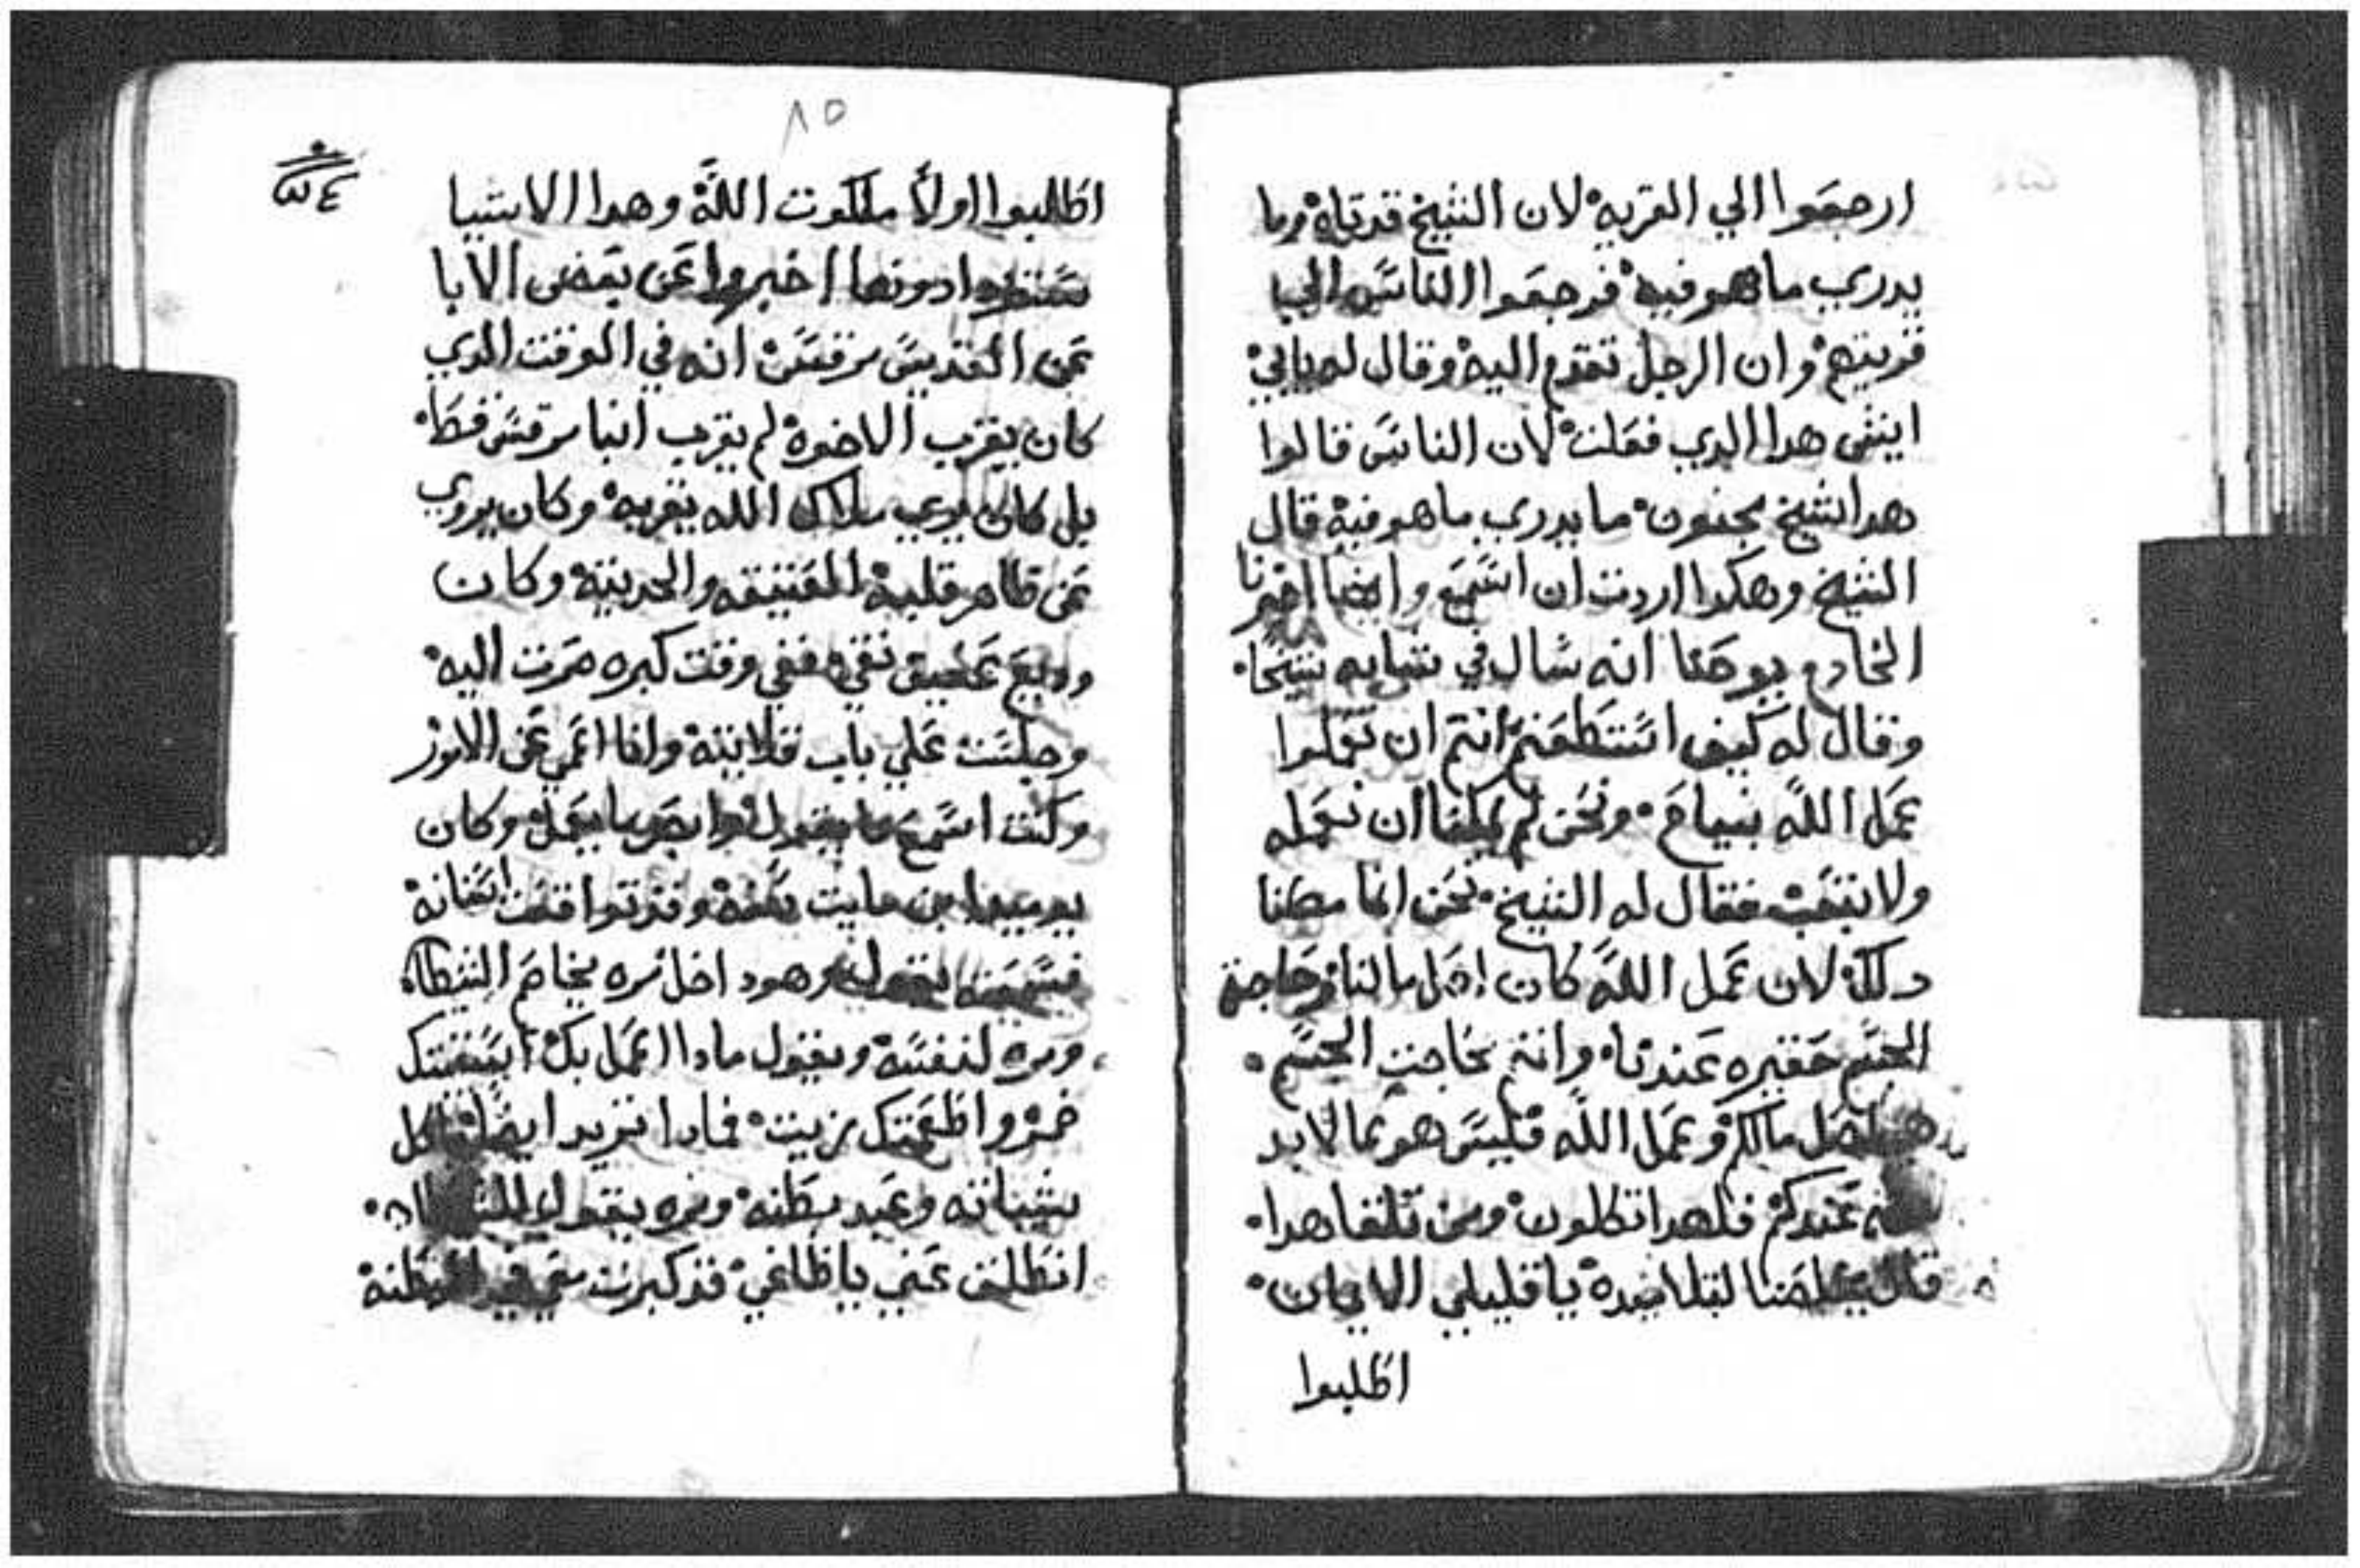 ارجعوا الي القريه لان الشيخ قد تاه وما
يدري ما هو فيه فرجعوا الناس الي
قريتهم وان الرجل تقدم اليه وقال له يا ابي
ايش هدا الدي فعلت لان الناس قالوا
هدا شيخ مجنون ما يدري ما هو فيه قال
الشيخ وهكدا اردت ان اسمع وايضا اخبرنا
الخادم يوحنا انه سال في شبابه شيخا
وقال له كيف استطعتم انتم ان تعملوا
عمل الله بنياح ونحن لم يمكنا ان نعمله
ولا بتعب فقال له الشيخ نحن انما
دلك لان عمل الله كان اصل مالنا وحاجة
الجسم حقيره عندنا وانتم حاجت الجسم
اصل مالكم وعمل الله فليس هو مما لابد
منه عندكم فلهدا تكلون ومن تلقا هدا
قال لتلاميده يا قليلي الايمان
اطلبوا
٨٥
اطلبوا اولا ملكوت الله وهدا الاشيا
ستزدادونها اخبروا عن بعض الابا
عن القديس مرقس انه في الوقت الدي
كان يقرب الاخوه لم يقرب انبا مرقس قط
بل كان يري ملاك الله يقربه وكان يروي
عن ظاهر قلبه العتيقه والحديثه وكان
وديع نقي ففي وقت كبره صرت اليه
وجلست علي باب قلايته وانا اعمي عن الامور
وكنت اسمع ما يقول وابصر ما يعمل وكان
يوميدا ابن مايت سنه وقد توا قلعت اسنانه
فسمعته يقول وهو داخل مره يخاصم الشيطان
ومره لنفسه ويقول مادا اعمل بك
خمر واطعمتك زيت فمادا تريد ايضا
بطنه ومره يقول
انطلق عني يا طاغي قد كبرت معي